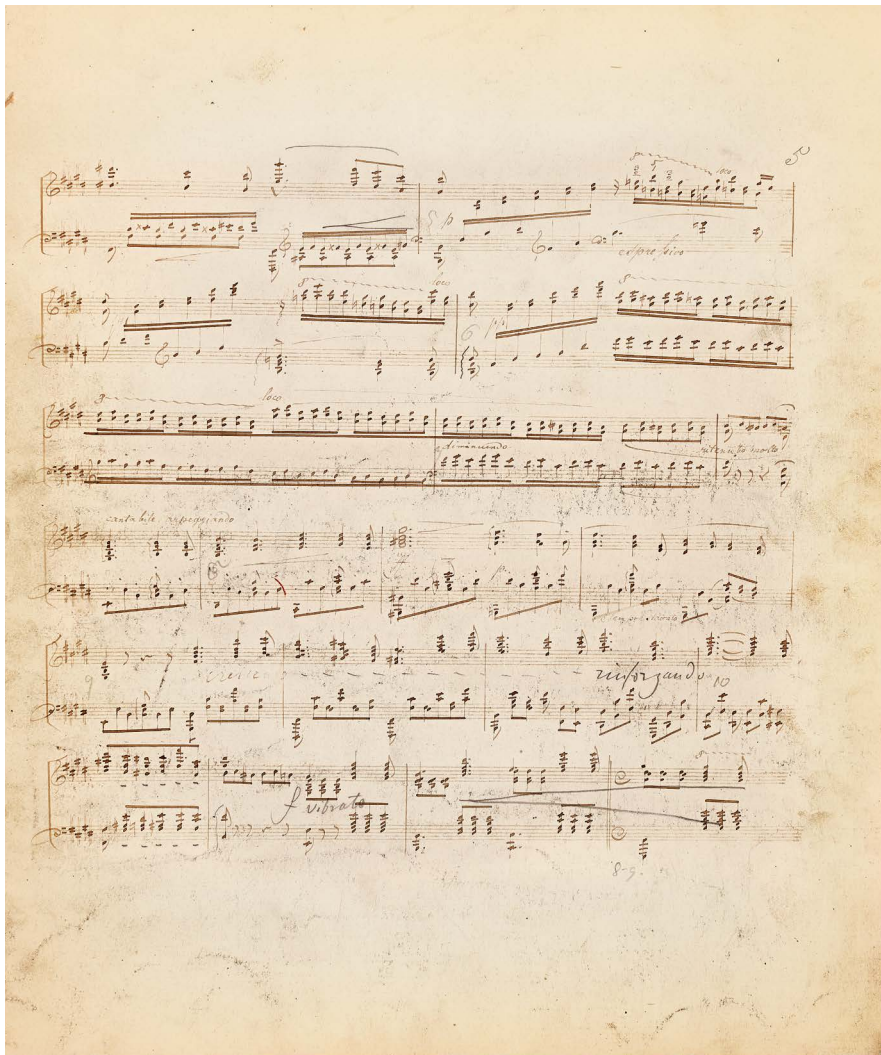 5
8 loco
p
espressivo
8 loco 8
6 pp
8 loco
diminuendo
ritenuto molto
cantabile, arpeggiando
p
9 cresc - - - - - rinforzando 10
8
f vibrato
8-9.